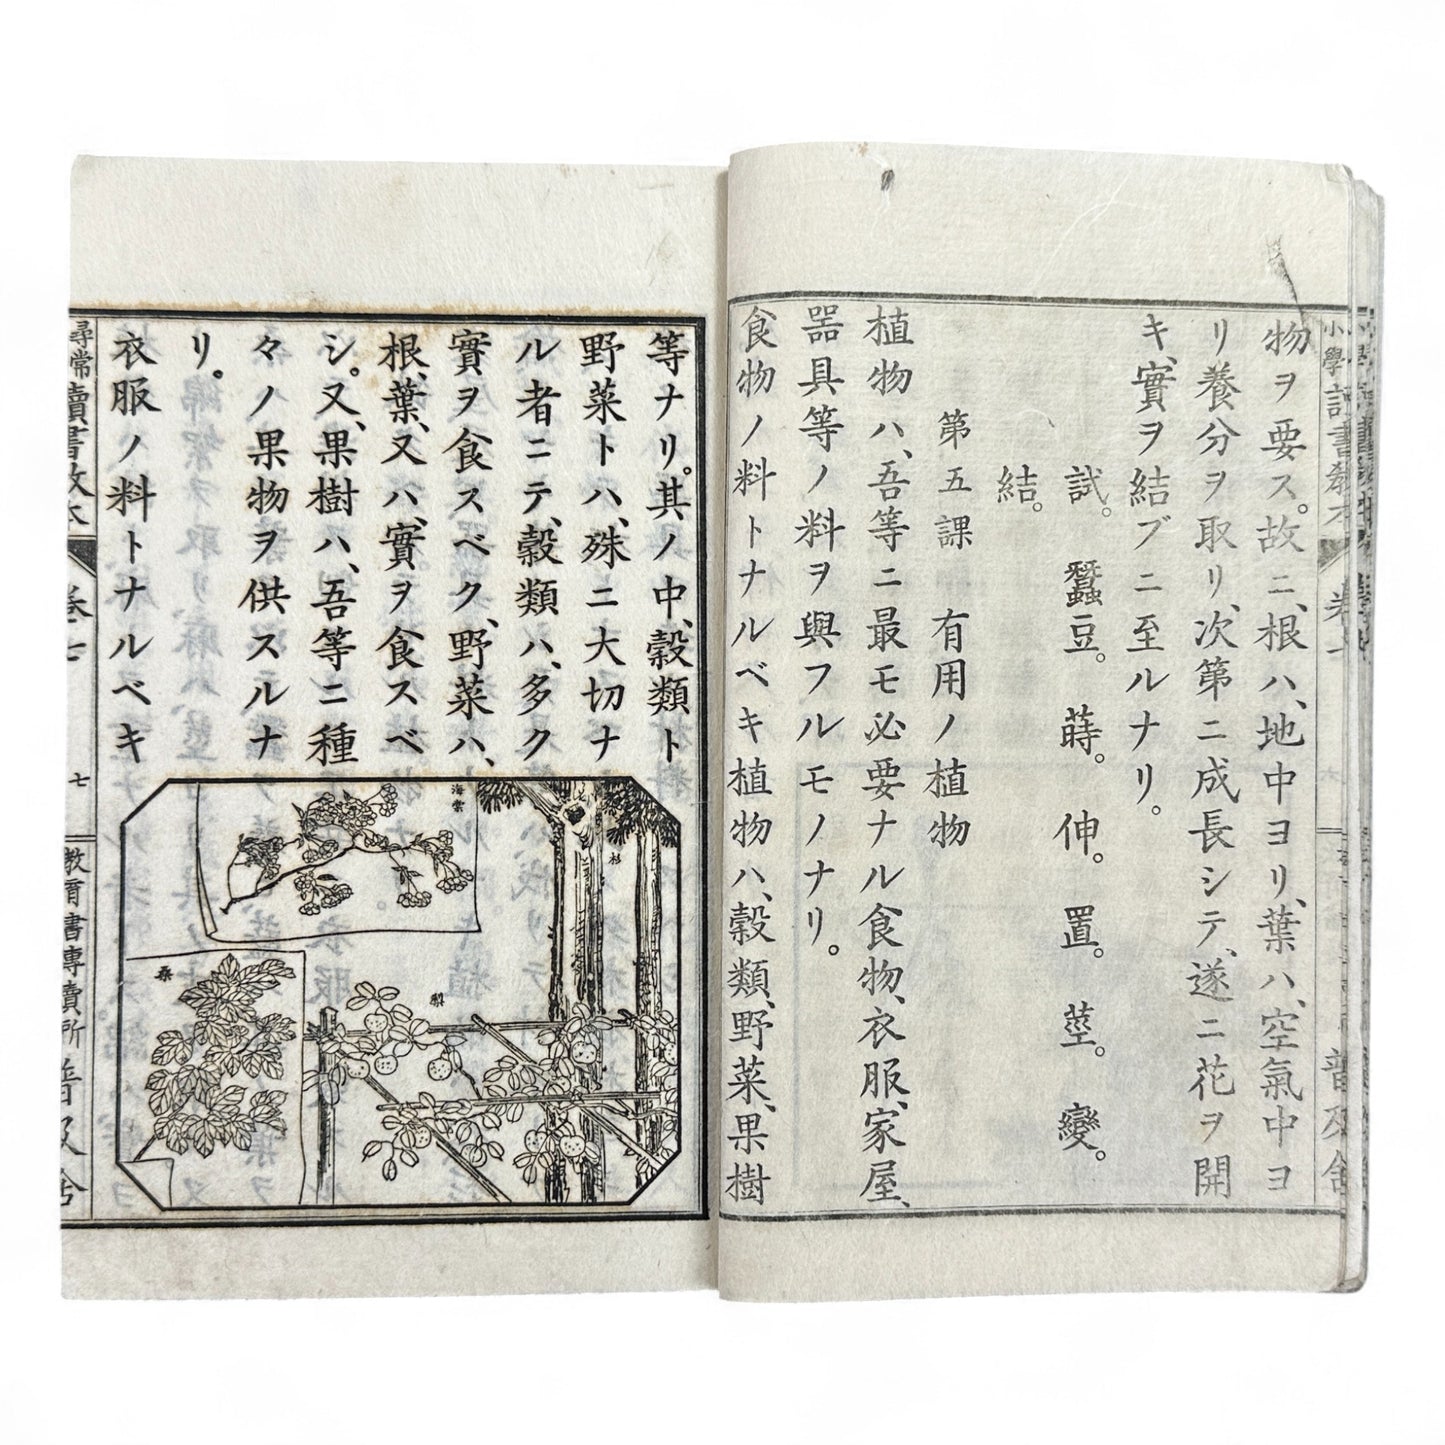 物ヲ要ス。故ニ、根ハ、地中ヨリ、葉ハ、空氣中ヨ
リ養分ヲ取リ、次第ニ成長シテ、遂ニ花ヲ開
キ、實ヲ結ブニ至ルナリ。
試。蠶豆。蒔。伸。置。莖。變。
結。
第五課 有用ノ植物
植物ハ、吾等ニ最モ必要ナル食物、衣服、家屋、
器具等ノ料ヲ與フルモノナリ。
食物ノ料トナルベキ植物ハ、穀類、野菜、果樹
等ナリ。其ノ中、穀類ト
野菜トハ、殊ニ大切ナ
ル者ニテ、穀類ハ、多ク
實ヲ食スベク、野菜ハ、
根、葉、又ハ、實ヲ食スベ
シ。又、果樹ハ、吾等ニ種
々ノ果物ヲ供スルナ
リ。
衣服ノ料トナルベキ
海棠
杉
桑
梨
尋常讀書敎本 卷七 七 教育書專賣所 普及舍